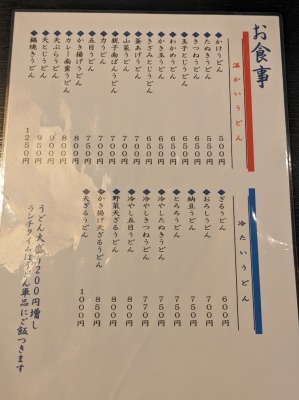 お食事
温かいうどん
◆かけうどん 500円
◆たぬきうどん 550円
◆きつねうどん
◆玉子とじうどん 650円
◆わかめうどん 650円
◆かき玉うどん 650円
◆きざみとじうどん 650円
◆釜あげうどん 700円
◆山菜うどん 700円
◆親子南ばんうどん
◆力うどん 700円
◆五目うどん 750円
◆かき揚げうどん 800円
◆カレー南蛮うどん 800円
◆天ぷらうどん 900円
◆天とじうどん 950円
◆鍋焼きうどん 1250円
冷たいうどん
◆ざるうどん 600円
◆おろしうどん 700円
◆納豆うどん 750円
◆とろろうどん 750円
◆冷やしたぬきうどん
◆冷やしきつねうどん 770円
◆冷やし五目うどん 800円
◆野菜天ざるうどん 800円
◆かき揚げ天ざるうどん 850円
◆天ざるうどん 1000円
うどん大盛り200円増し
ランチタイムはうどん単品にご飯つきます